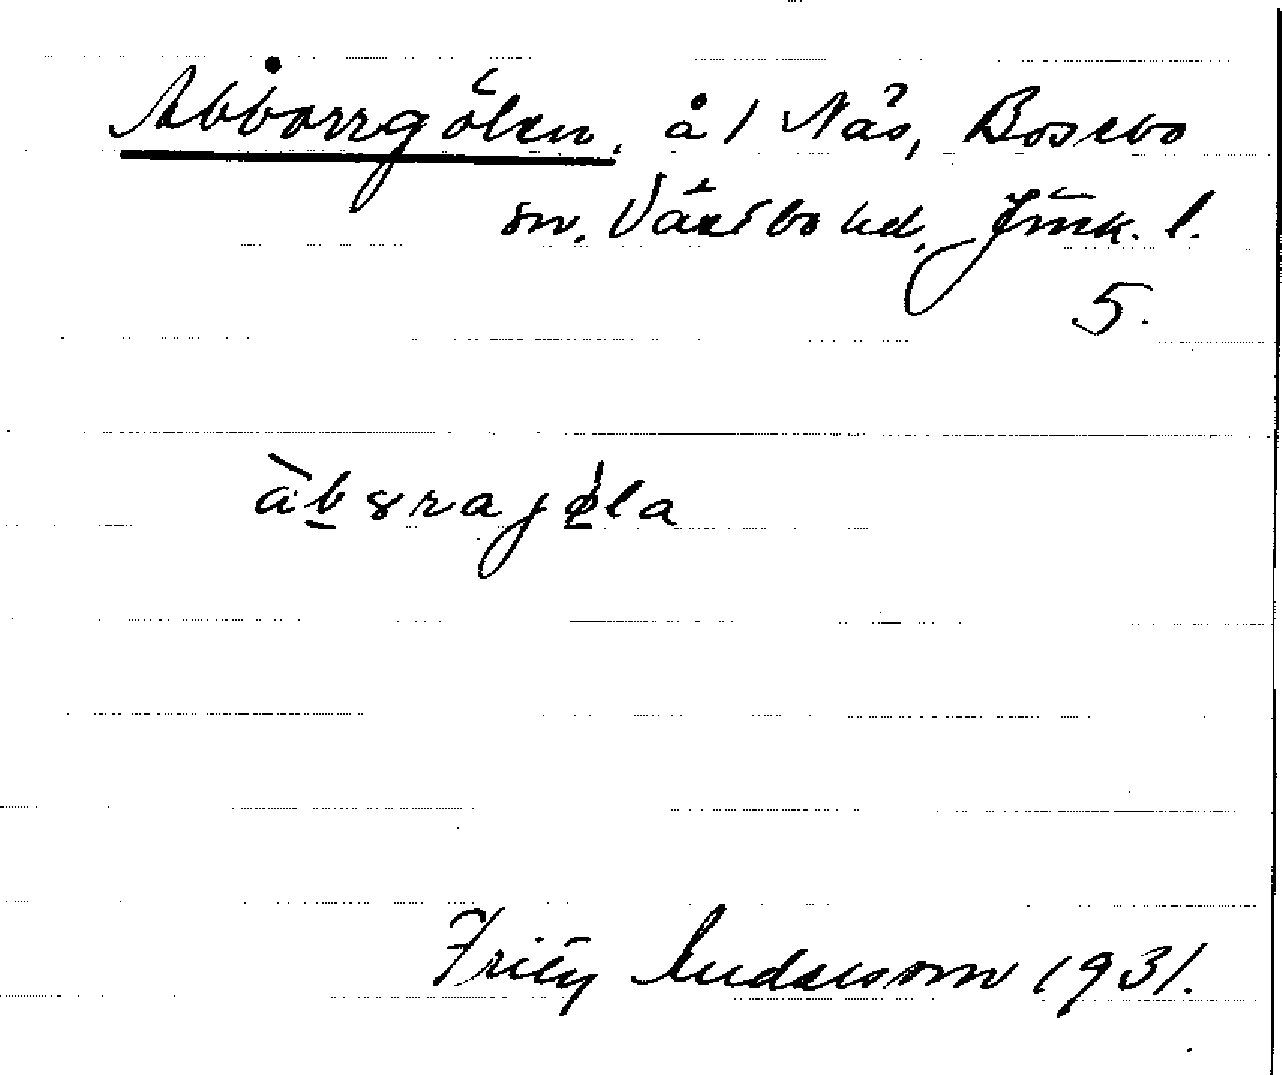 Abborrgölen, å 1 Näs, Bosebo
sn. Västbo hd, Jönk. l.
5.
àbɤrajøla
Fritz Andersson 1931.